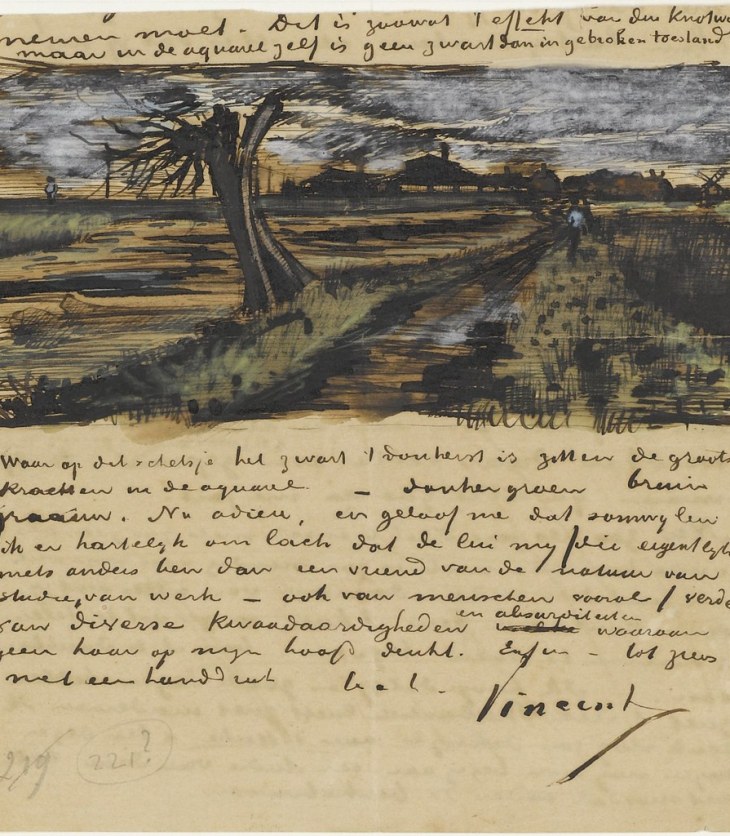 nemen moet. Dit is zoowat 't effekt van den knotwi
maar in de aquarel zelf is geen zwart dan in gebroken toestand
Waar op dit schetsje het zwart 't donkerst is zitten de groots
krachten in de aquarel – donkergroen bruin
graauw. Nu adieu, en geloof me dat somwylen
ik er hartelyk om lach dat de lui my /die eigentlyk
niets anders ben dan een vriend van de natuur van
studie, van werk – ook van menschen vooral/ verde
van diverse kwaadaardigheden en absurditeiten waaraan
geen haar op myn hoofd denkt. Enfin – tot ziens
met een handdruk t. à t.
Vincent
219 221?